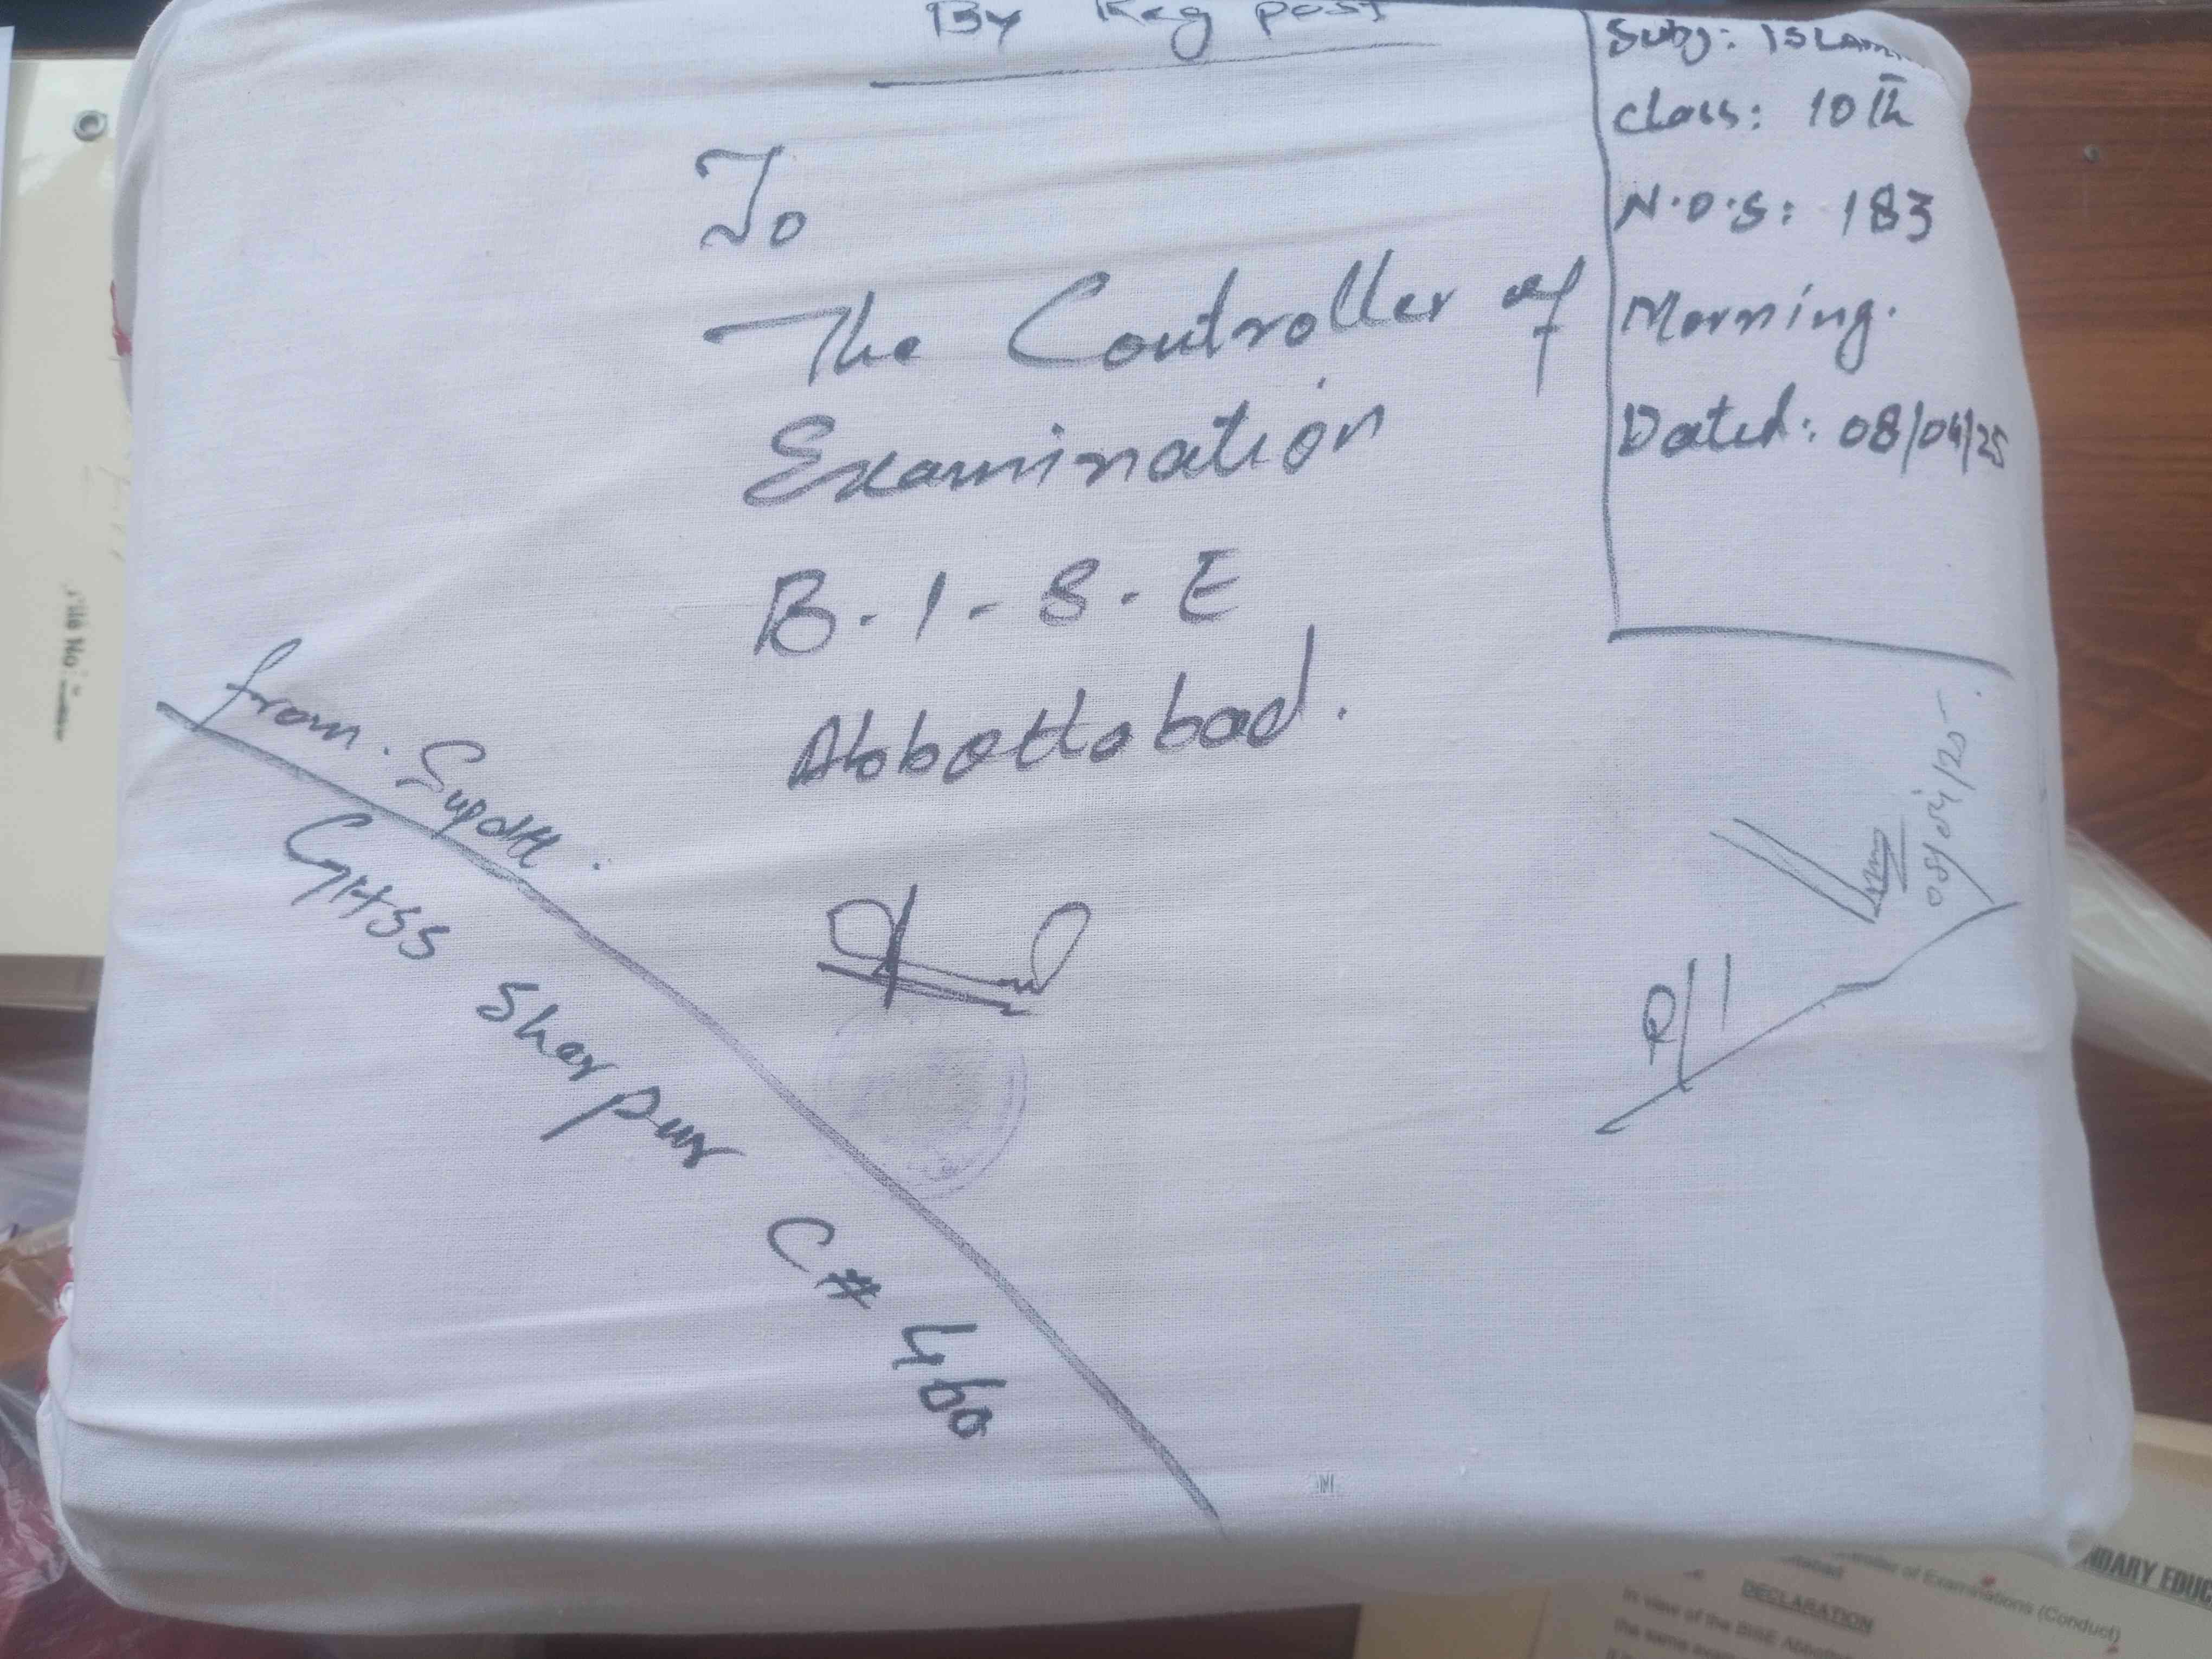 By Reg post
Subj: ISLAM
Class: 10th
N.O.S: 183
Morning.
Dated: 08/04/25
To
The Controller of
Examination
B.I-S.E
Abbottabad.
from. Supdtt.
GHSS Sherpur C# 460
R/I
File No:
NDARY EDUC
of Examinations (Conduct)
DECLARATION
In view of the BISE Abbott
the same exam